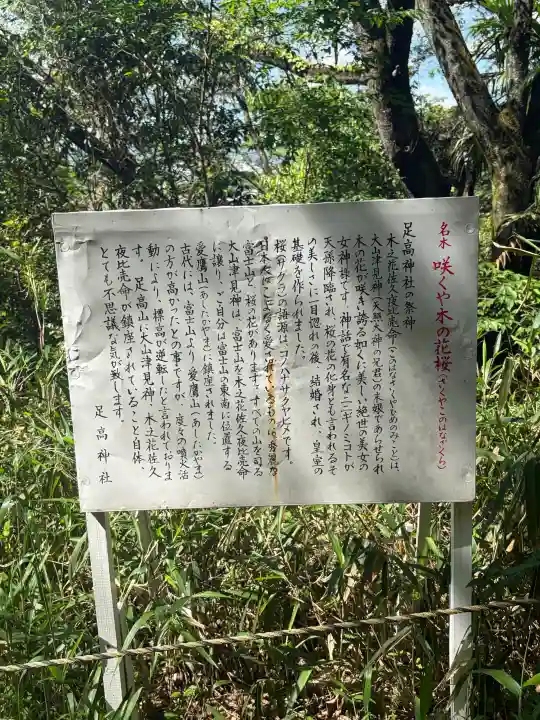 名水 咲くや木の花桜(さくやこのはなざくら)
足高神社の祭神
木之花佐久夜比売命(このはなさくやひめのみこと)は、
大山津見神(天照大神の兄君)の末娘であらせられ
木の花が咲き誇る如くに美しい絶世の美女の
女神様です。神話で有名なニニギノミコトが
天孫降臨され、桜の花の化身とも言われるそ
の美しさに一目惚れの後、結婚され、皇室の
基礎を作られました。
桜(サクラ)の語源は、コノハナサクヤヒメです。
日本人がこよなく愛し
富士山と桜の花があります。すべての山を司る
大山津見神は、富士山を木之花佐久夜比売命
に譲り、ご自分は富士山の東南に位置する
愛鷹山(あしたかやま)に鎮座されました。
古代には、富士山より、愛鷹山(あしたかやま)
の方が高かったとの事ですが、度々の噴火活
動により、標高が逆転したと言われておりま
す。足高山に大山津見神、木之花佐久
夜比売命が鎮座されていること自体、
とても不思議な気が致します。
足高神社